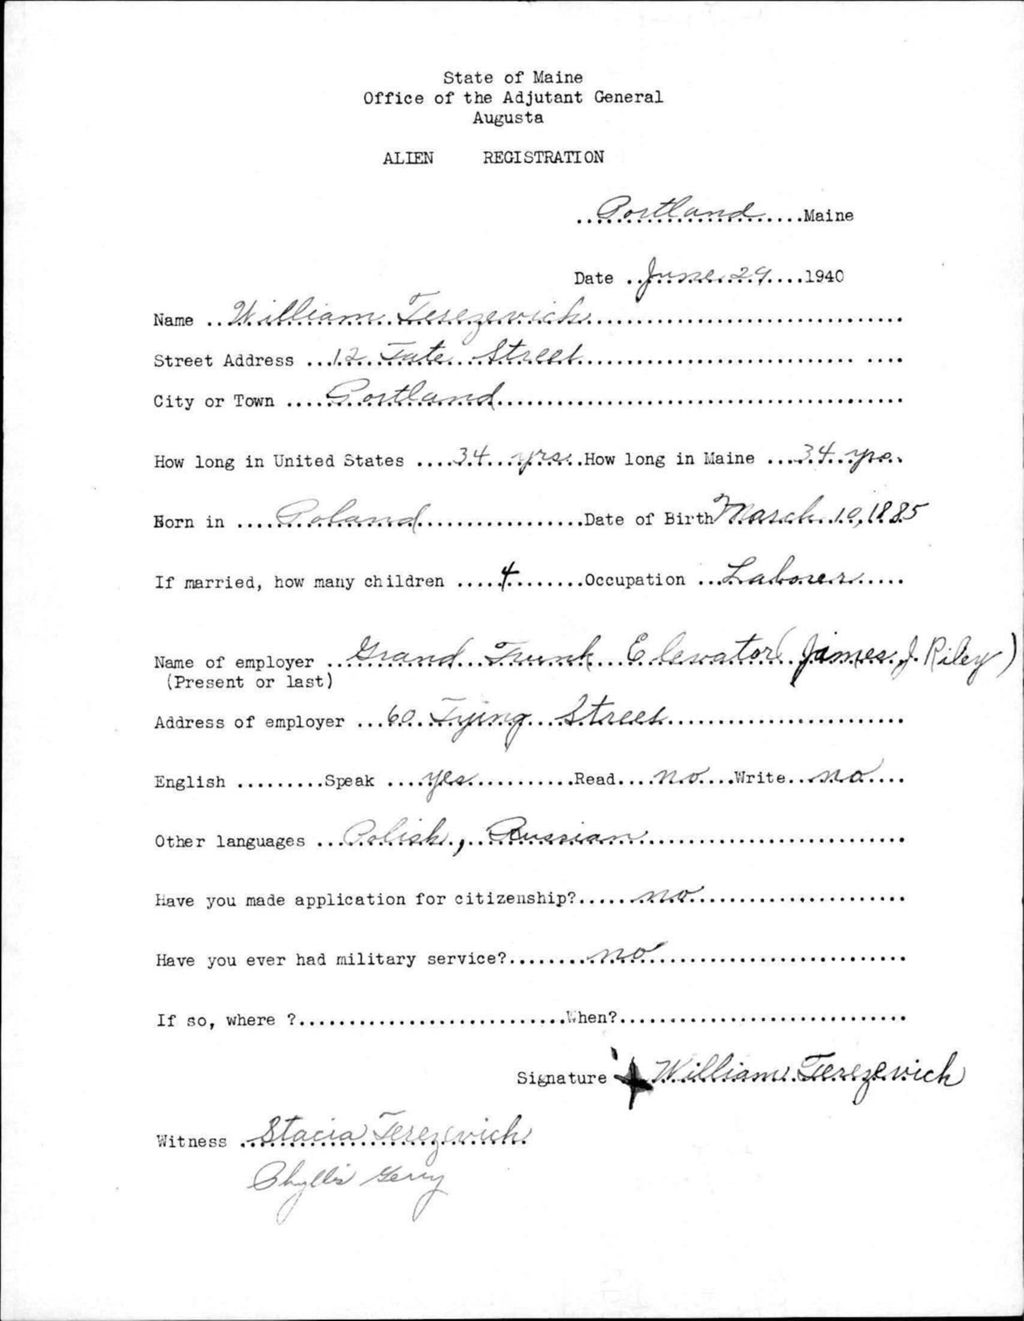 State of Maine
Office of the Adjutant General
Augusta
ALIEN REGISTRATION
..Portland....Maine
Date ..June 29....1940
Name ..William Terezevich..............................
Street Address ...12 Tate Street........................... ....
City or Town ....Portland.........................................
How long in United States ....34 yrs..How long in Maine ...34 yrs.
Born in ....Poland.................Date of Birth March 10, 1885
If married, how many children ....4........Occupation ..Laborer.....
Name of employer ..Grand Trunk Elevator (James J. Riley)
(Present or last)
Address of employer ...60 Tying Street........................
English .........Speak ....yes..........Read....no....Write...no....
Other languages ...Polish, Russian..........................
Have you made application for citizenship?......no......................
Have you ever had military service?.........no..........................
If so, where ?...........................When?.............................
Signature X William Terezevich
Witness .Stacia Terezevich
Phyllis Gerry